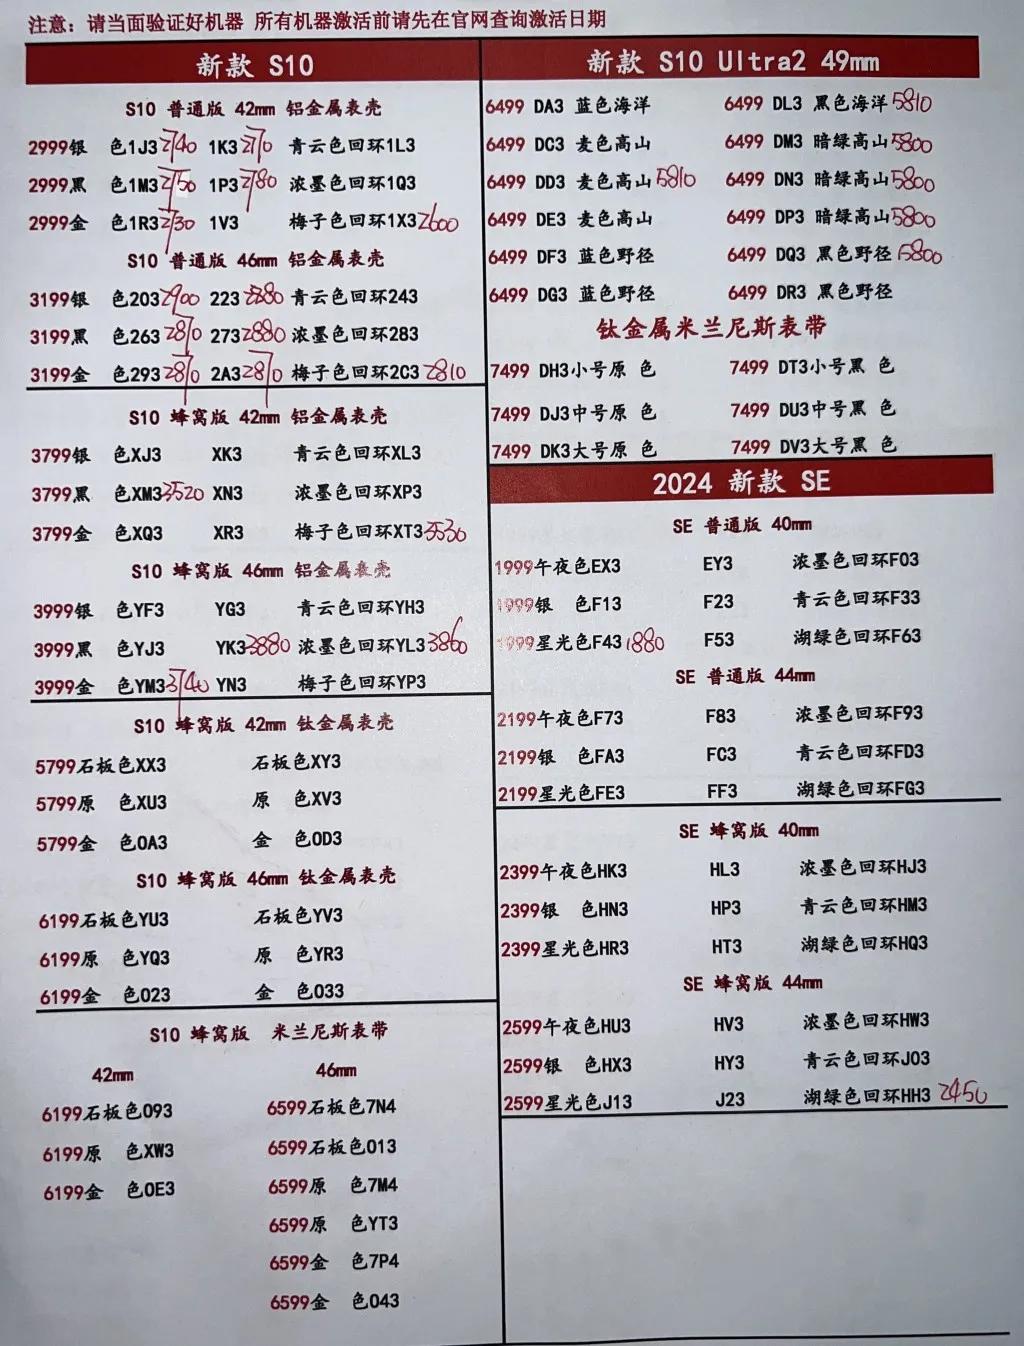 注意：请当面验证好机器 所有机器激活前请先在官网查询激活日期
新款 S10
S10 普通版 42mm 铝金属表壳
2999银 色1J3 2740 1K3 2770 青云色回环1L3
2999黑 色1M3 2750 1P3 2780 浓墨色回环1Q3
2999金 色1R3 2730 1V3 梅子色回环1X3 2600
S10 普通版 46mm 铝金属表壳
3199银 色203 2900 223 2880 青云色回环243
3199黑 色263 2810 273 2880 浓墨色回环283
3199金 色293 2810 2A3 2810 梅子色回环2C3 2810
S10 蜂窝版 42mm 铝金属表壳
3799银 色XJ3 XK3 青云色回环XL3
3799黑 色XM3 3520 XN3 浓墨色回环XP3
3799金 色XQ3 XR3 梅子色回环XT3 3530
S10 蜂窝版 46mm 铝金属表壳
3999银 色YF3 YG3 青云色回环YH3
3999黑 色YJ3 YK3 3880 浓墨色回环YL3 3860
3999金 色YM3 3740 YN3 梅子色回环YP3
S10 蜂窝版 42mm 钛金属表壳
5799石板色XX3 石板色XY3
5799原 色XU3 原 色XV3
5799金 色0A3 金 色0D3
S10 蜂窝版 46mm 钛金属表壳
6199石板色YU3 石板色YV3
6199原 色YQ3 原 色YR3
6199金 色023 金 色033
S10 蜂窝版 米兰尼斯表带
42mm 46mm
6199石板色093 6599石板色7N4
6199原 色XW3 6599石板色013
6199金 色0E3 6599原 色7M4
6599原 色YT3
6599金 色7P4
6599金 色043
新款 S10 Ultra2 49mm
6499 DA3 蓝色海洋 6499 DL3 黑色海洋 5810
6499 DC3 麦色高山 6499 DM3 暗绿高山 5800
6499 DD3 麦色高山 5810 6499 DN3 暗绿高山 5800
6499 DE3 麦色高山 6499 DP3 暗绿高山 5800
6499 DF3 蓝色野径 6499 DQ3 黑色野径 5800
6499 DG3 蓝色野径 6499 DR3 黑色野径
钛金属米兰尼斯表带
7499 DH3小号原 色 7499 DT3小号黑 色
7499 DJ3中号原 色 7499 DU3中号黑 色
7499 DK3大号原 色 7499 DV3大号黑 色
2024 新款 SE
SE 普通版 40mm
1999午夜色EX3 EY3 浓墨色回环F03
1999银 色F13 F23 青云色回环F33
1999星光色F43 1880 F53 湖绿色回环F63
SE 普通版 44mm
2199午夜色F73 F83 浓墨色回环F93
2199银 色FA3 FC3 青云色回环FD3
2199星光色FE3 FF3 湖绿色回环FG3
SE 蜂窝版 40mm
2399午夜色HK3 HL3 浓墨色回环HJ3
2399银 色HN3 HP3 青云色回环HM3
2399星光色HR3 HT3 湖绿色回环HQ3
SE 蜂窝版 44mm
2599午夜色HU3 HV3 浓墨色回环HW3
2599银 色HX3 HY3 青云色回环J03
2599星光色J13 J23 湖绿色回环HH3 2450